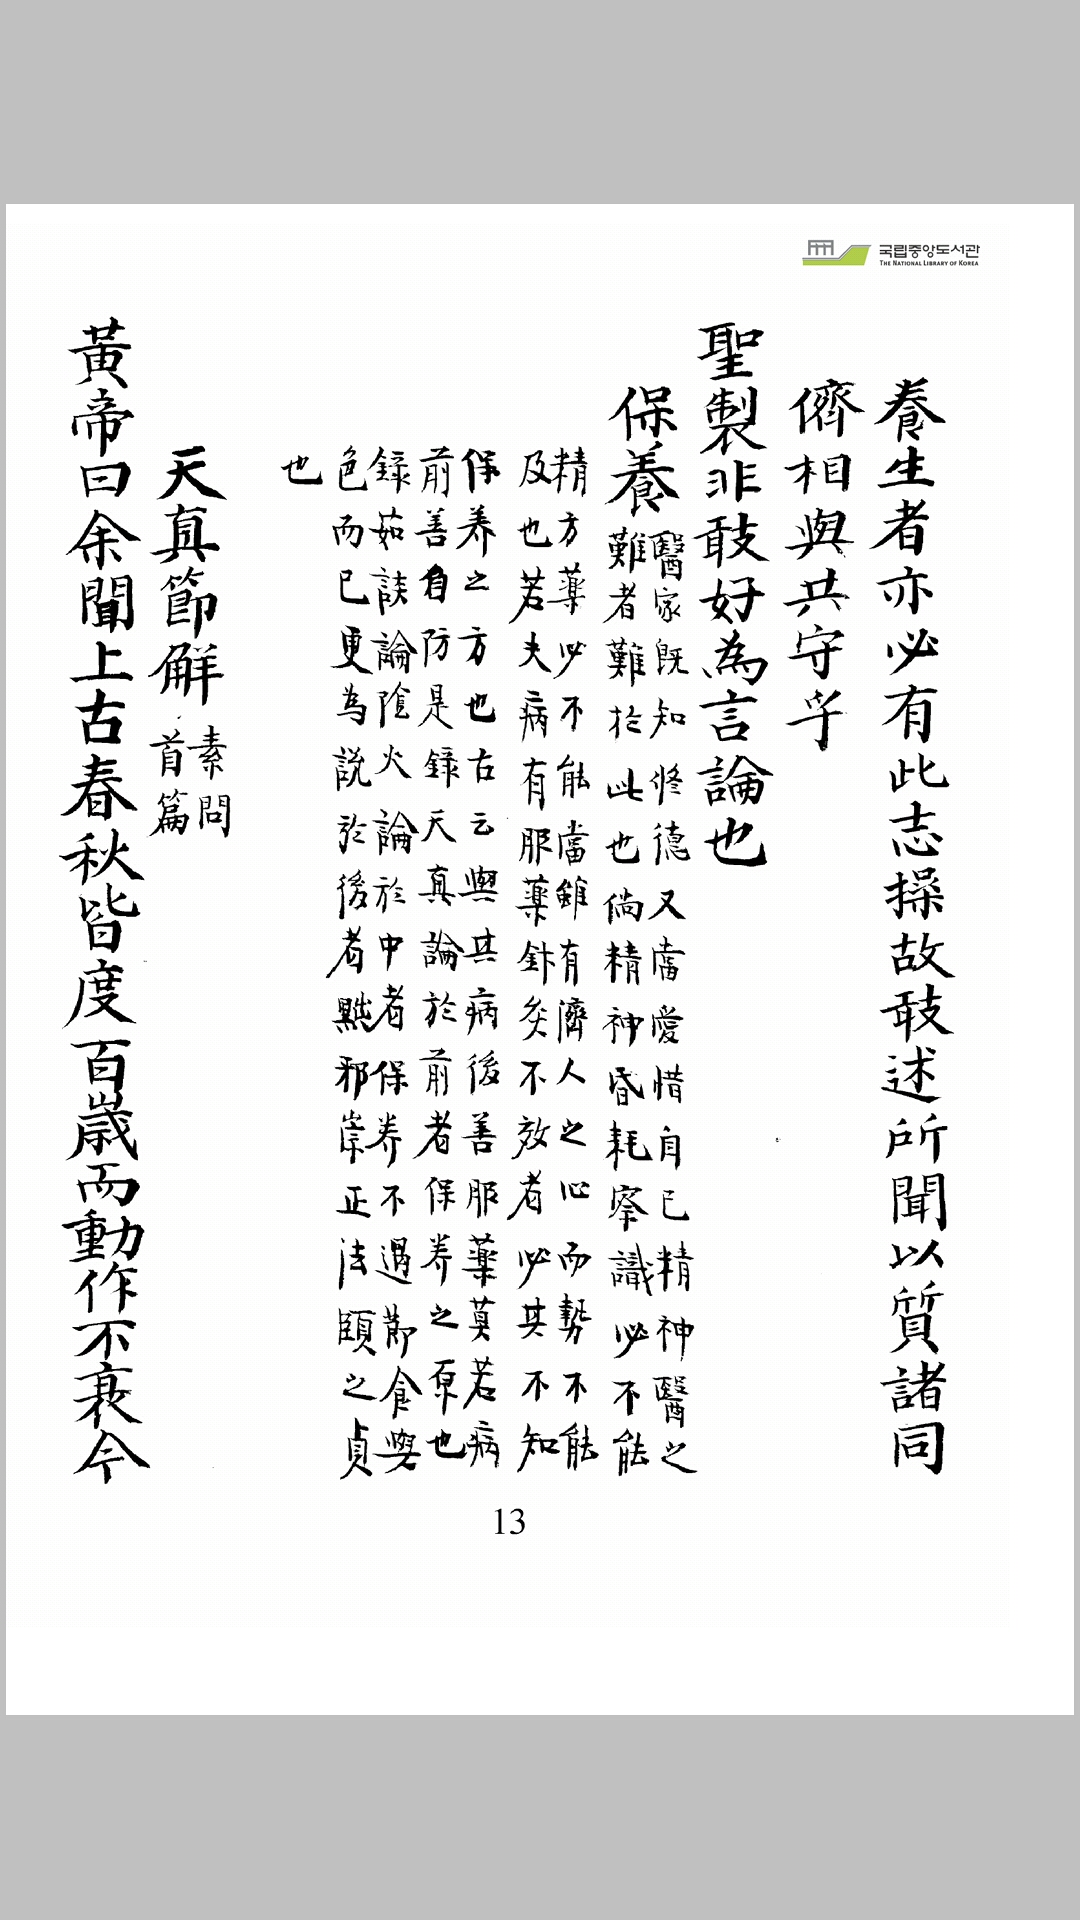 국립중앙도서관
THE NATIONAL LIBRARY OF KOREA
養生者亦必有此志操故敢述所聞以質諸同
儕相與共守乎
聖製非敢好為言論也
保養
醫家既知修德又當愛惜自已精神醫之
難者難於此也倘精神昏耗察識必不能
精方藥必不能當雖有濟人之心而勢不能
及也若夫病有服藥針灸不效者必其不知
保养之方也古云與其病後善服藥莫若病
前善自防是錄天真論於前者保养之原也
錄茹談論陰火論於中者保养不過節食與
色而已更為說於後者黜邪崇正法頤之貞
也
天真節解
素問
首篇
黃帝曰余聞上古春秋皆度百歲而動作不衰今
13